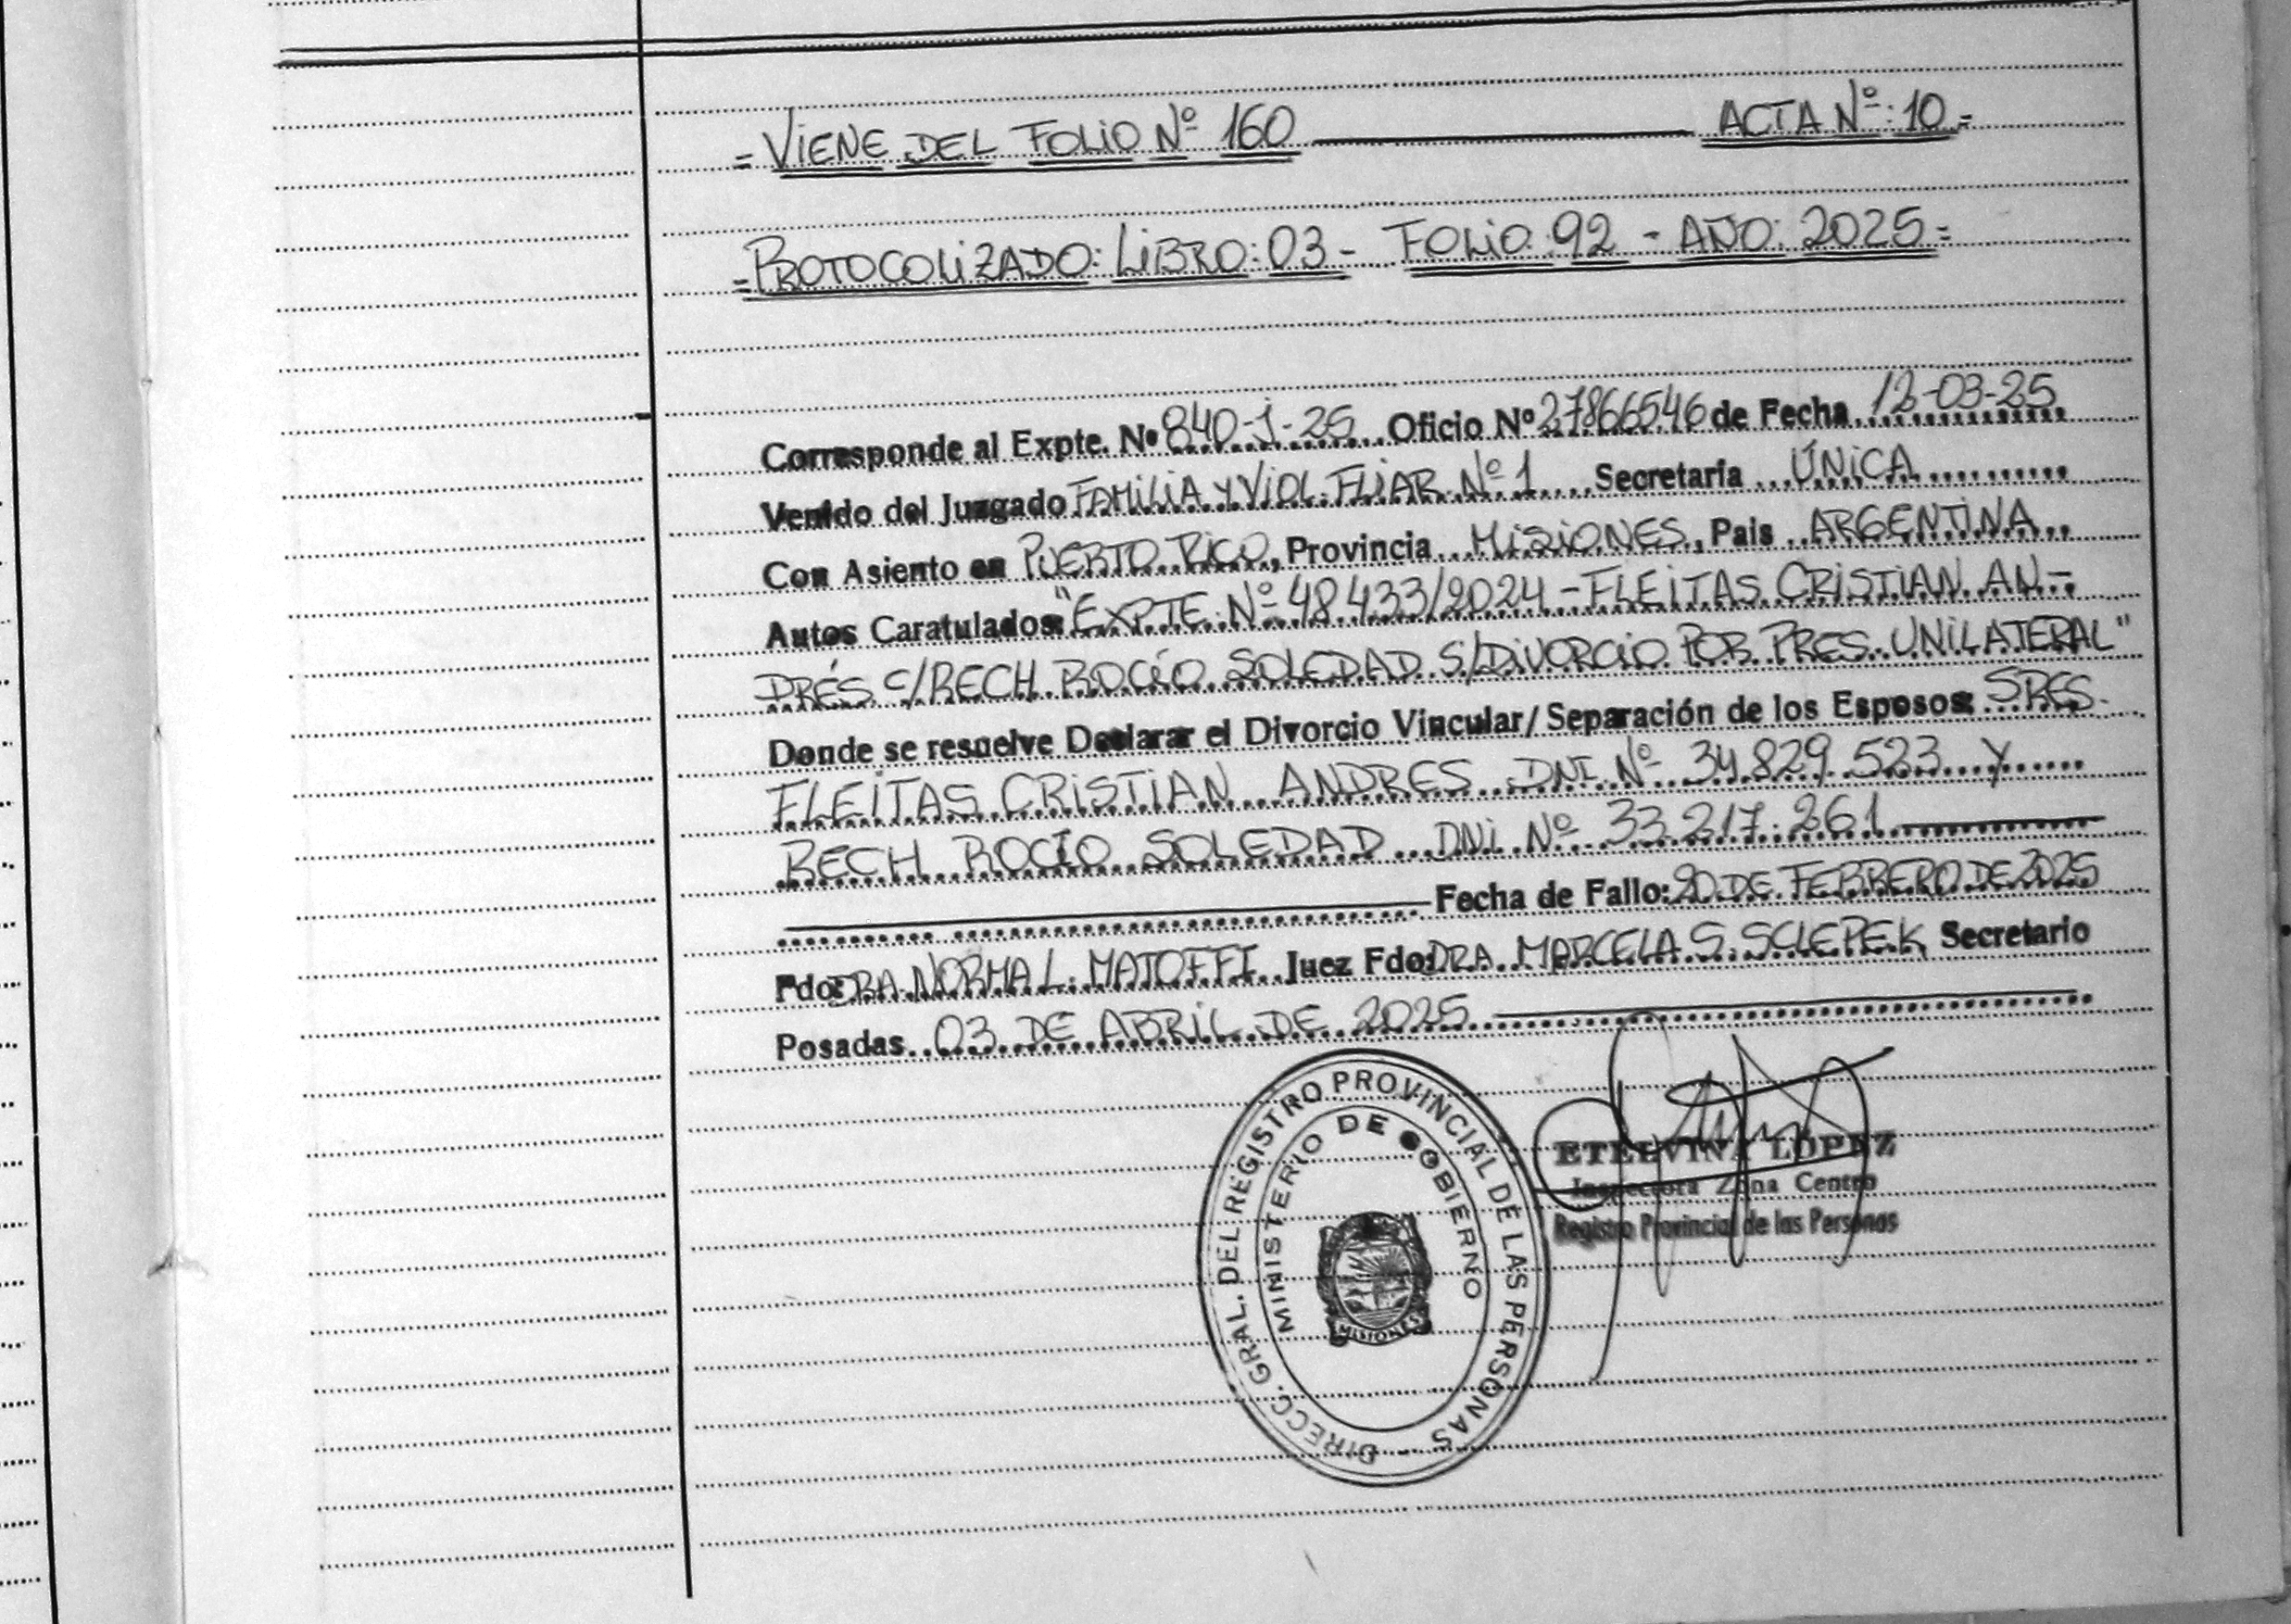 =VIENE DEL FOLIO Nº 160 ACTA Nº: 10=
=PROTOCOLIZADO: LIBRO: 03- FOLIO: 92 - AÑO: 2025=
Corresponde al Expte. Nº 840-J-25 Oficio Nº 27866546 de Fecha 12-03-25
Venido del Juzgado FAMILIA Y VIOL. FLIAR. Nº 1 Secretaría ÚNICA
Con Asiento en PUERTO RICO, Provincia MISIONES, Pais ARGENTINA
Autos Caratulados: "EXPTE. Nº 48433/2024 - FLEITAS CRISTIAN AN-
DRÉS C/RECH ROCÍO SOLEDAD S/DIVORCIO POR PRES. UNILATERAL"
Donde se resuelve Declarar el Divorcio Vincular/Separación de los Esposos: SRES.
FLEITAS CRISTIAN ANDRES DNI Nº 34.829.523 Y
RECH ROCÍO SOLEDAD DNI Nº 33.217.261
Fecha de Fallo: 20 DE FEBRERO DE 2025
Fdo: DRA. NORMA L. MATOFFI Juez Fdo: DRA. MARCELA S. SCLEPEK Secretario
Posadas 03 DE ABRIL DE 2025
DIRECC. GRAL. DEL REGISTRO PROVINCIAL DE LAS PERSONAS -
MINISTERIO DE GOBIERNO
MISIONES
ETELVINA LOPEZ
Inspectora Zona Centro
Registro Provincial de las Personas